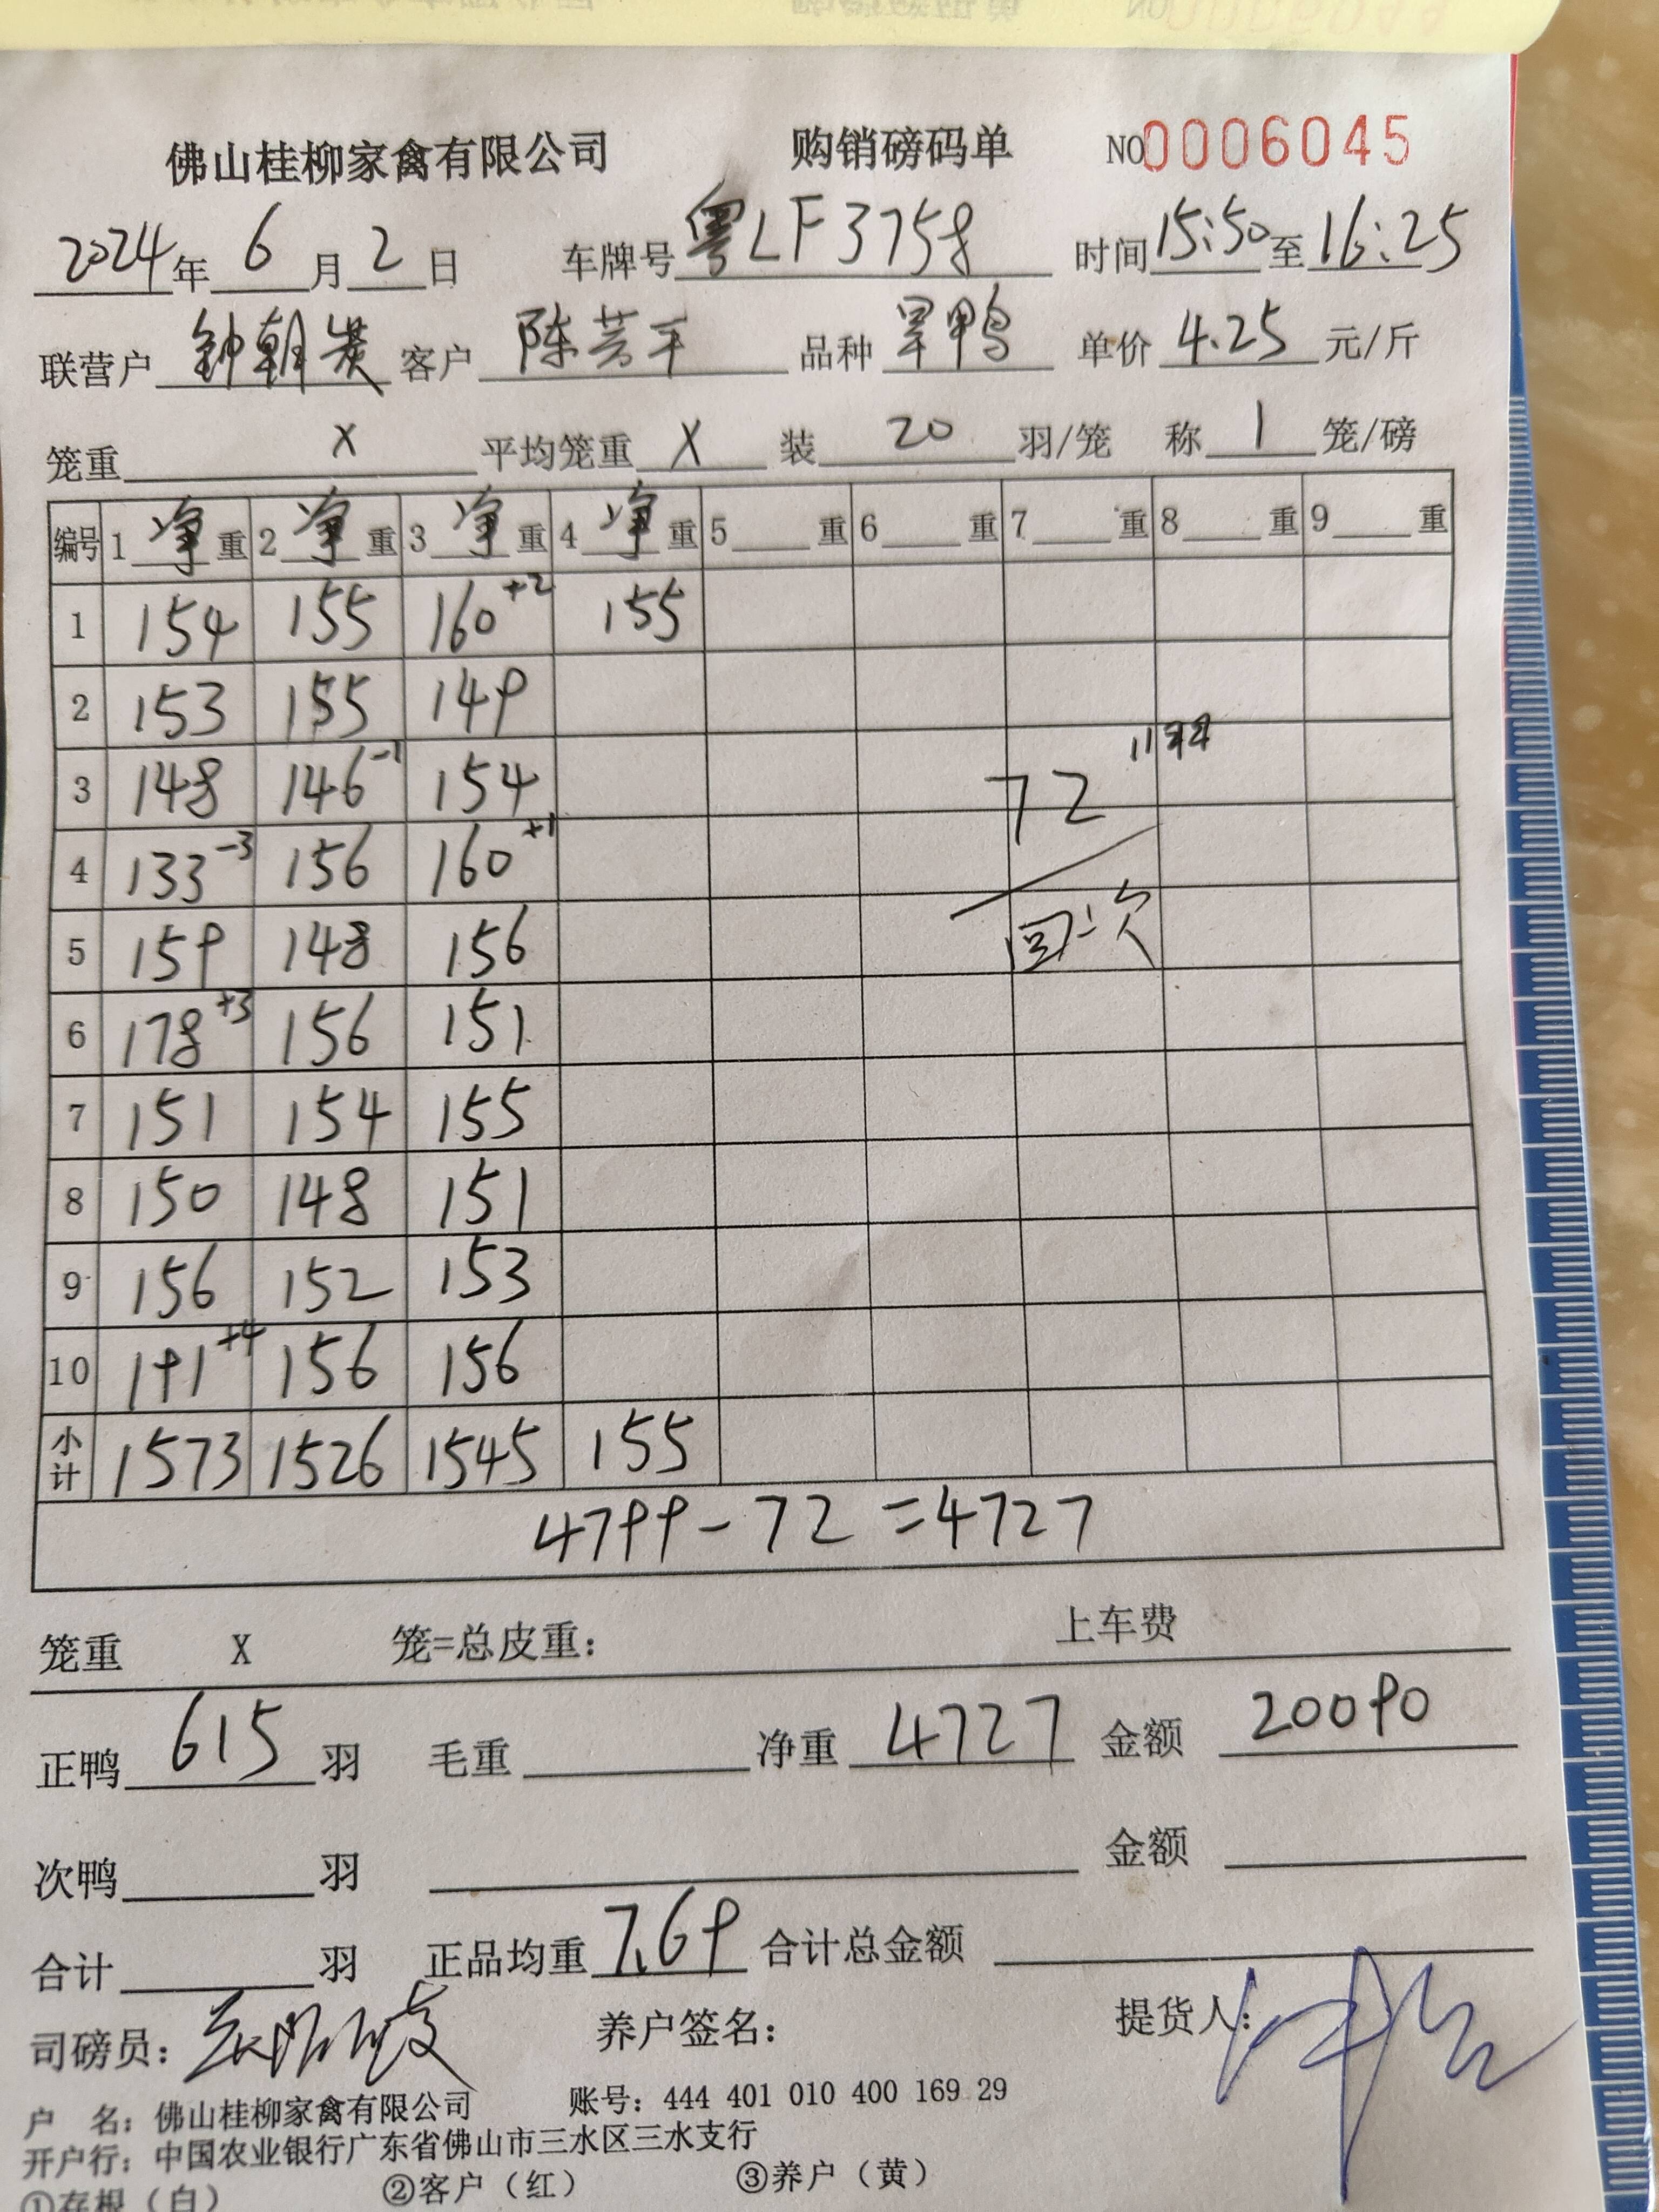 佛山桂柳家禽有限公司 购销磅码单 NO0006045
2024年 6月 2日 车牌号 粤LF3758 时间 15:50 至 16:25
联营户 钟朝 客户 陈芳平 品种 旱鸭 单价 4.25 元/斤
笼重 X 平均笼重 X 装 20 羽/笼 称 1 笼/磅
编号 1 净 重 2 净 重 3 净 重 4 净 重 5 重 6 重 7 重 8 重 9 重
1 154 155 160+2 155
2 153 155 149
3 148 146-1 154
4 133-3 156 160+1
5 159 148 156
6 178+3 156 151
7 151 154 155
8 150 148 151
9 156 152 153
10 191+4 156 156
72
回二次
小计 1573 1526 1545 155
4799-72=4727
笼重 X 笼=总皮重： 上车费
正鸭 615 羽 毛重 净重 4727 金额 20090
次鸭 羽 金额
合计 羽 正品均重 7.69 合计总金额
司磅员： 养户签名： 提货人：
户 名：佛山桂柳家禽有限公司 账号：444 401 010 400 169 29
开户行：中国农业银行广东省佛山市三水区三水支行
①存根（白） ②客户（红） ③养户（黄）